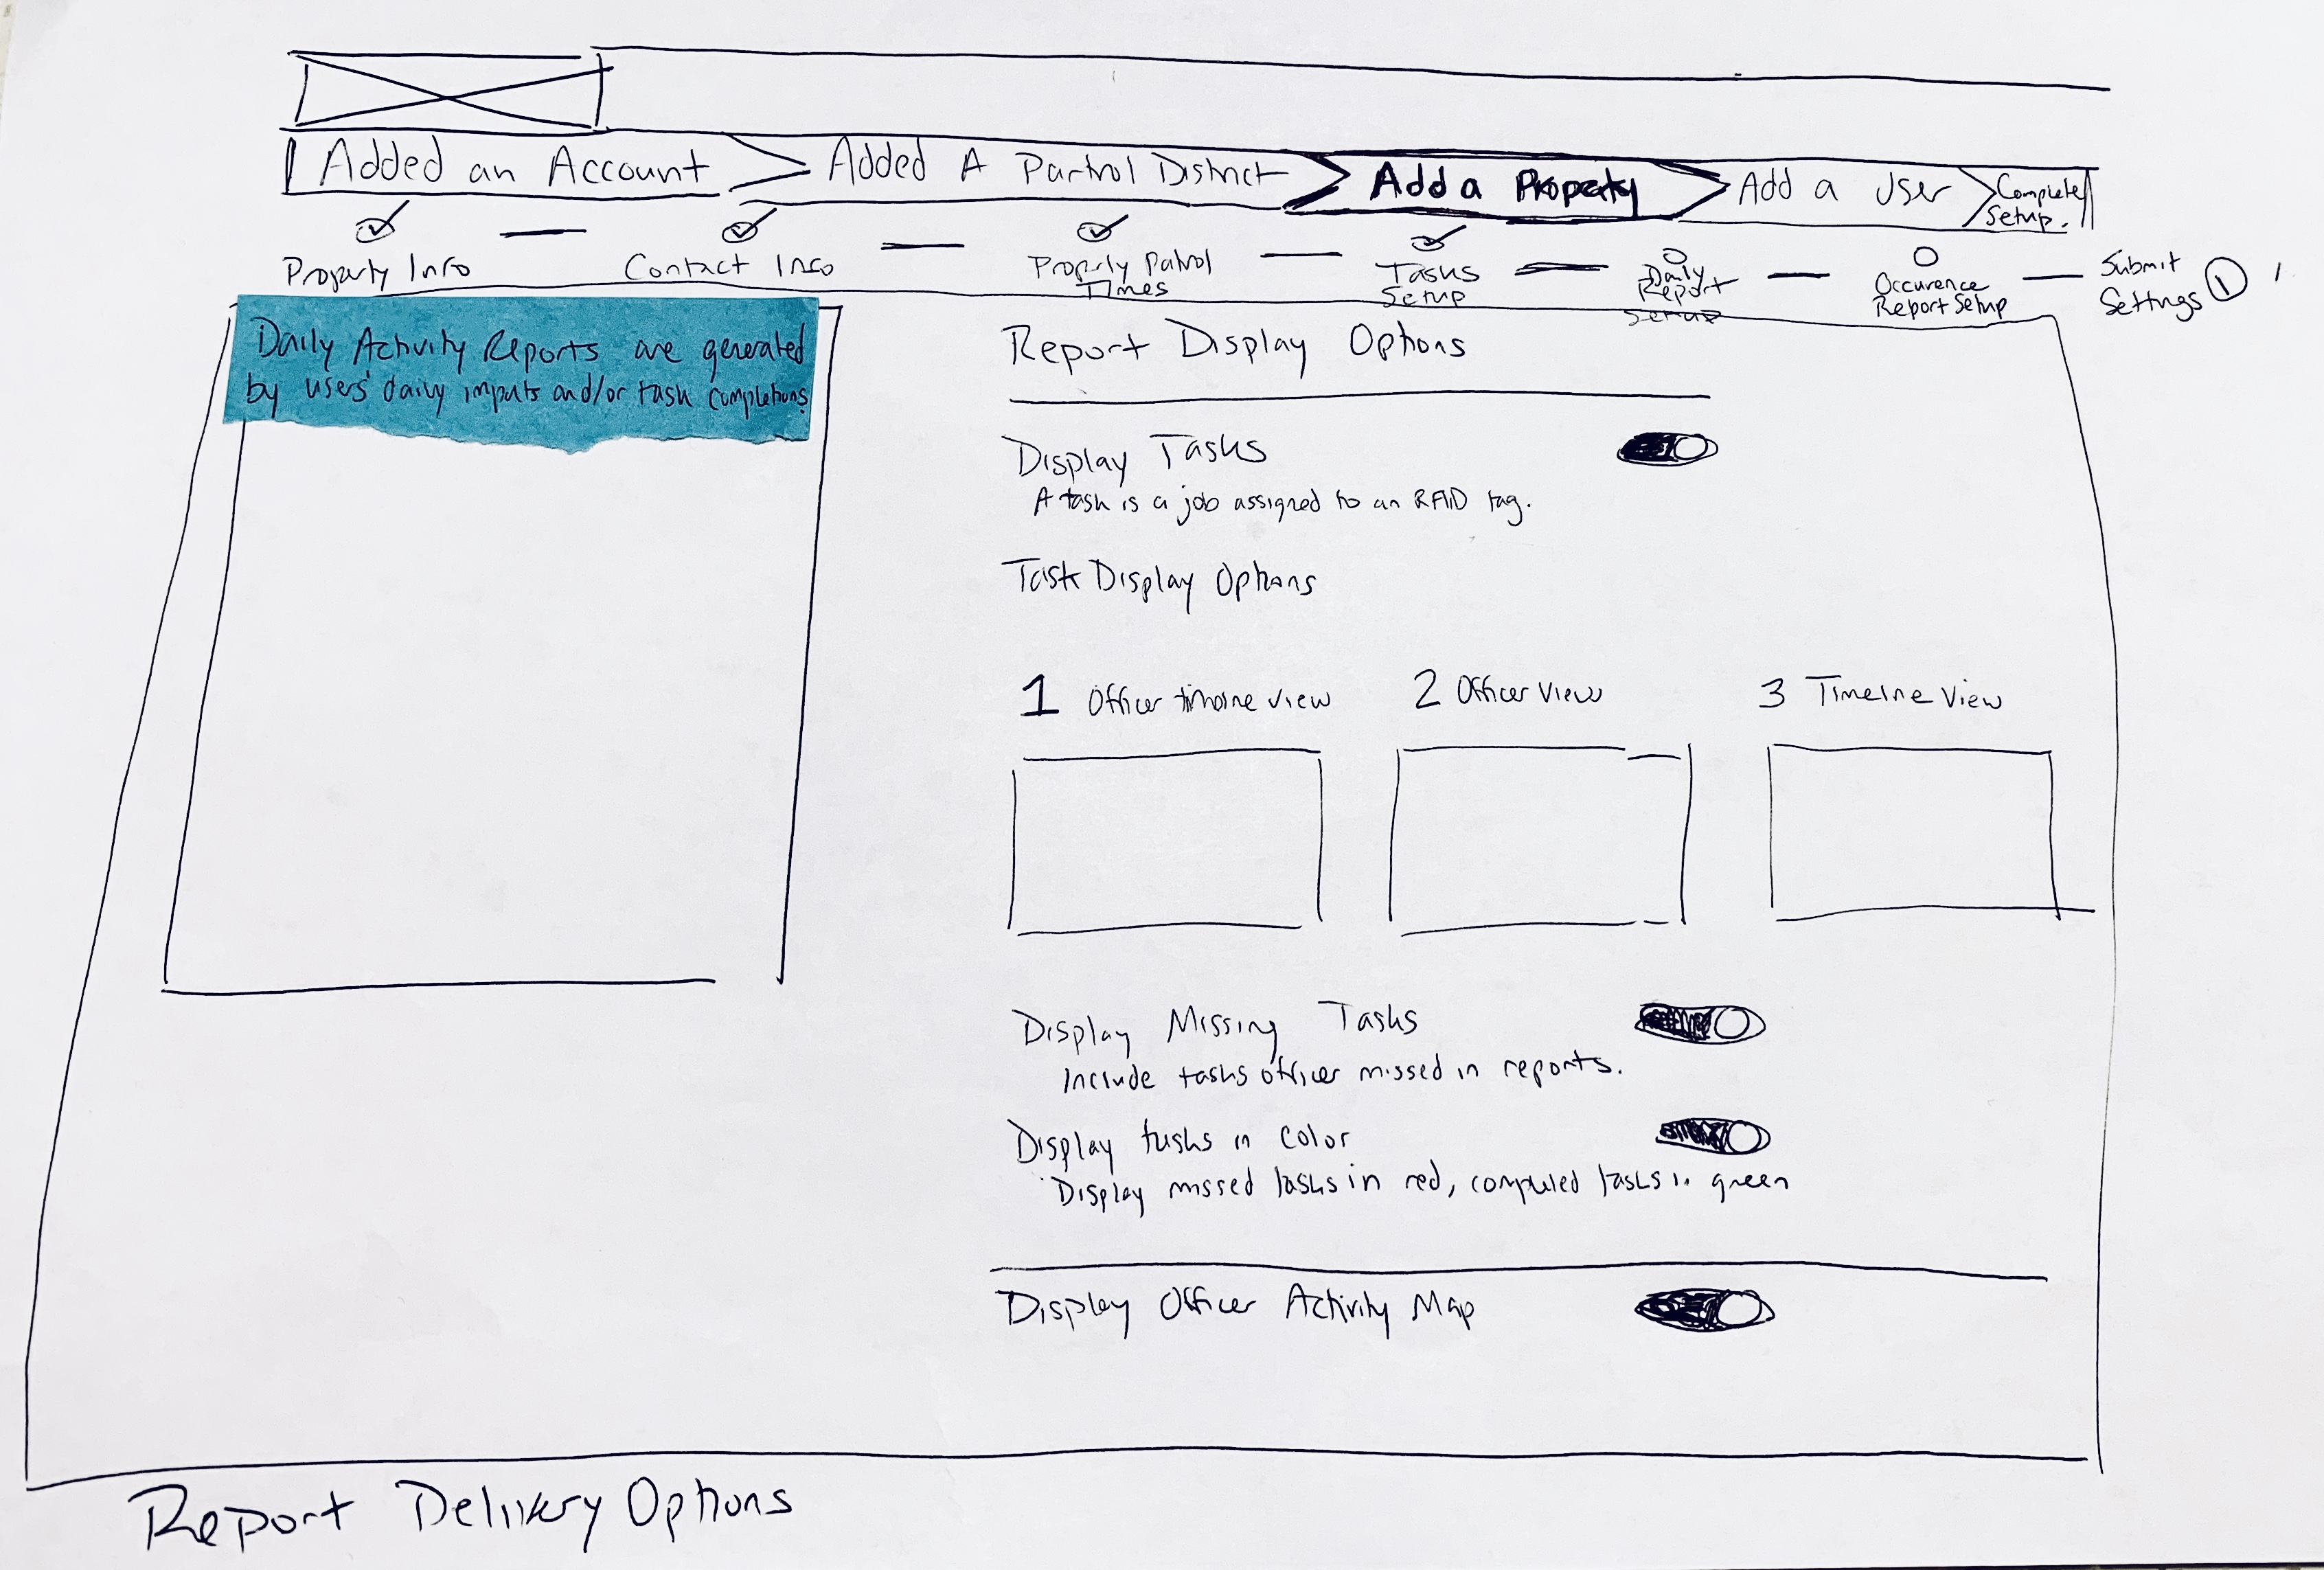 Added an Account
Added A Partrol District
Add a Property
Add a User
Complete
Setup.
Property Info
Contact Info
Property Patrol
Times
Tasks
Setup
Daily
Report
Setup
Occurence
Report Setup
Submit
Settings 1
Daily Activity Reports are generated
by users' daily inputs and/or task completions.
Report Display Options
Display Tasks
A task is a job assigned to an RFID tag.
Task Display Options
1 Officer timeline view
2 Officer View
3 Timeline View
Display Missing Tasks
Include tasks officer missed in reports.
Display tasks in color
Display missed tasks in red, completed tasks in green
Display Officer Activity Map
Report Delivery Options